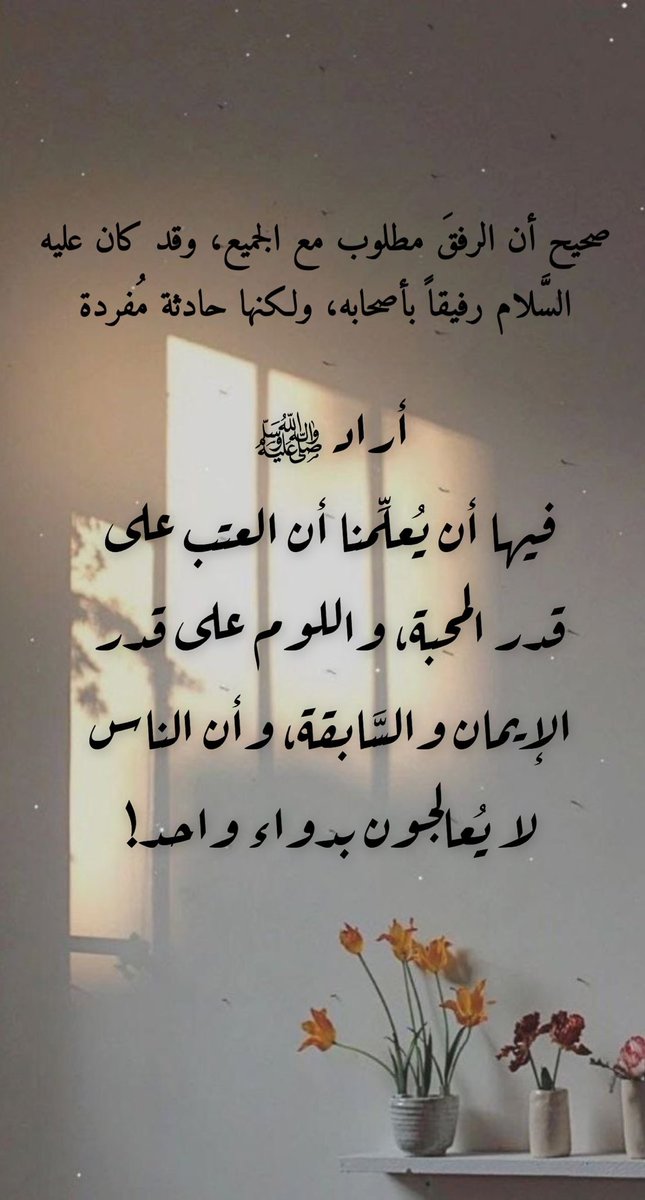 صحيح أن الرفقَ مطلوب مع الجميع، وقد كان عليه
السَّلام رفيقاً بأصحابه، ولكنها حادثة مُفردة
أراد ﷺ
فيها أن يُعلِّمنا أن العتب على
قدر المحبة، واللوم على قدر
الإيمان والسَّابقة، وأن الناس
لا يُعالجون بدواء واحد!